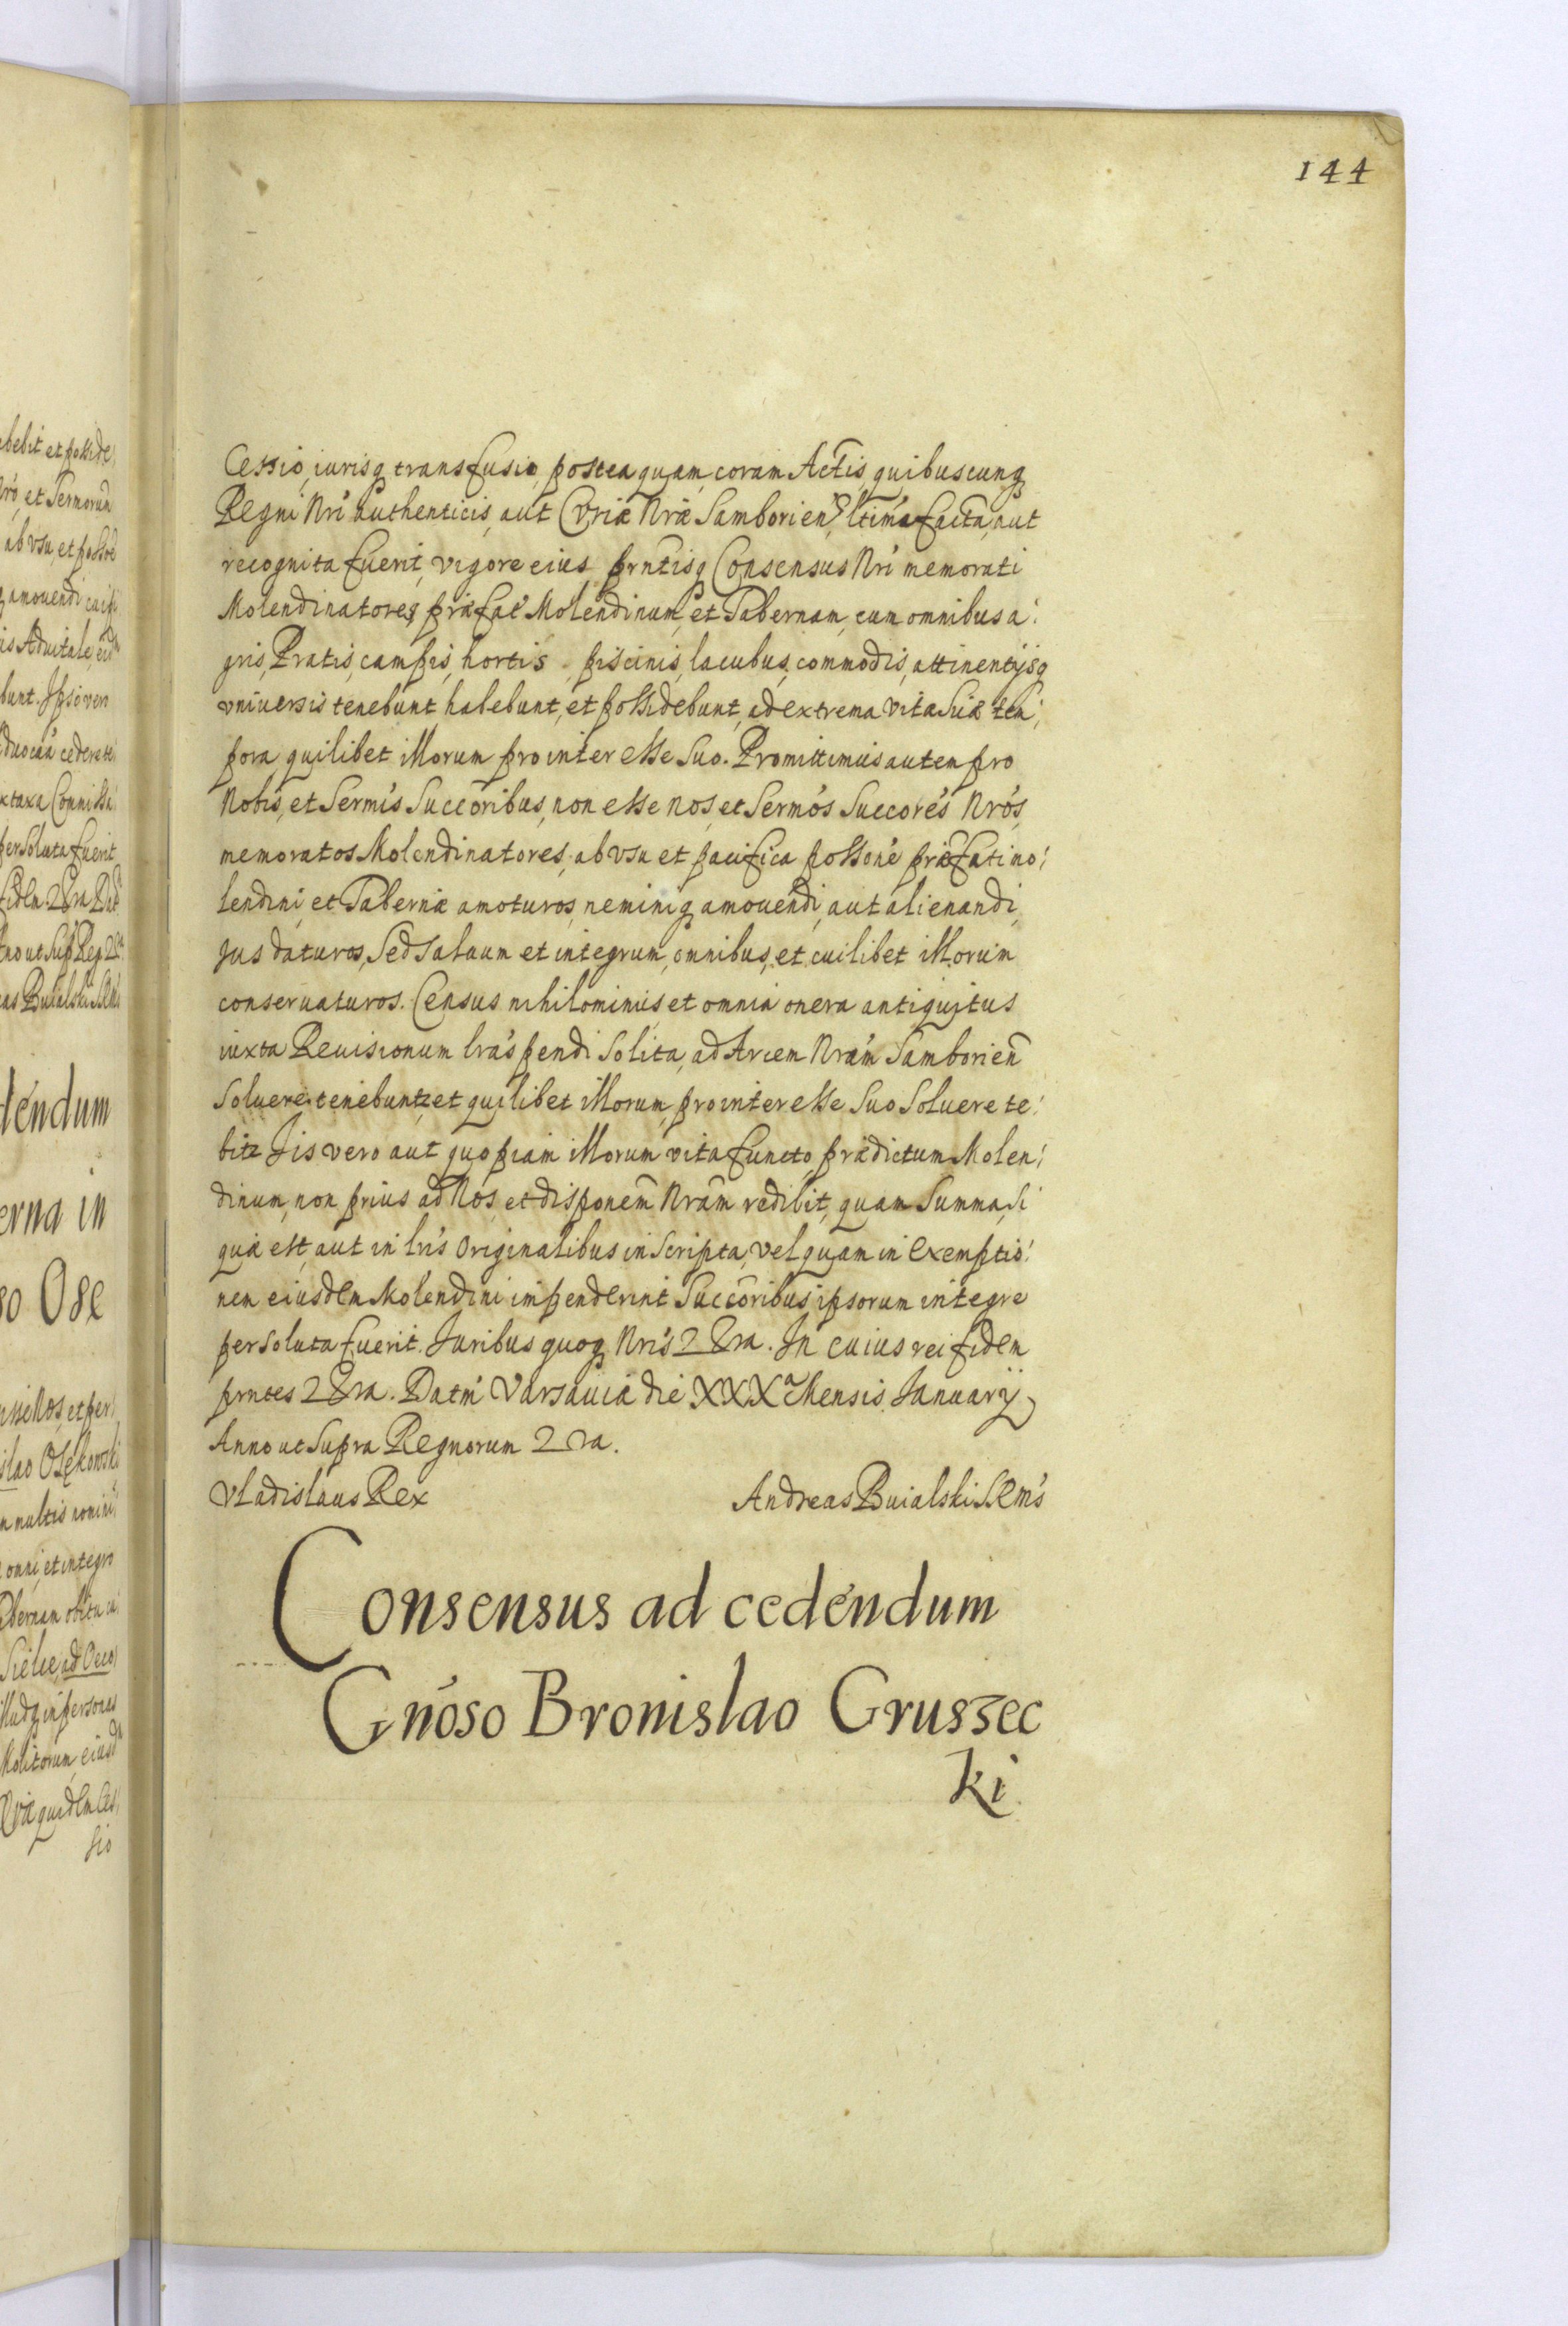 144
Cessio, iurisq transfusio, postea quam, coram Actis, quibuscunq
Regni Nri authenticis, aut Curiæ Nræ Samborien, facta, aut
recognita fuerit, vigore eius prntisq Consensus Nri memorati
Molendinatores, præfat Molendinum, et Tabernam, cum omnibus a:
gris, Pratis, campis, hortis, piscinis, lacubus, commodis, attinentijsq
vniuersis tenebunt habebunt, et possidebunt, ad extrema vitæ Suæ tem:
pora quilibet illorum pro interesse Suo. Promittimus autem pro
Nobis, et Sermis Succoribus, non esse nos, et Sermos Succores Nros,
memoratos Molendinatores, ab vsu et pacifica possone præfati mo:
lendini, et Tabernæ amoturos, neminiq amouendi, aut alienandi,
Jus daturos, Sed Saluum et integrum, omnibus, et cuilibet illorum
conseruaturos. Census nihilominus et omnia onera antiquitus
iuxta Reuisionum lras pendi Solita, ad Arcem Nram Samborien
Soluere tenebuntr et quilibet illorum, pro interesse Suo Soluere te:
bitr Iis vero aut quopiam illorum vita functo, prædictum Molen:
dinum, non prius ad Nos, et disponem Nram redibit, quam Summa, si
quæ est, aut in lris Originalibus inscripta, vel quam in exemptio:
nem eiusdem Molendini impenderint Succoribus ipsorum integre
persoluta fuerit. Juribus quoq Nris 2 &ra. In cuius rei fidem
prntes 2 &ra. Datm Varsauiæ die XXX Mensis Januarij
Anno ut Supra Regnorum 2 ra.
Vladislaus Rex Andreas Buialski SRMs
Consensus ad cedendum
Gnoso Bronislao Gruszec
ki